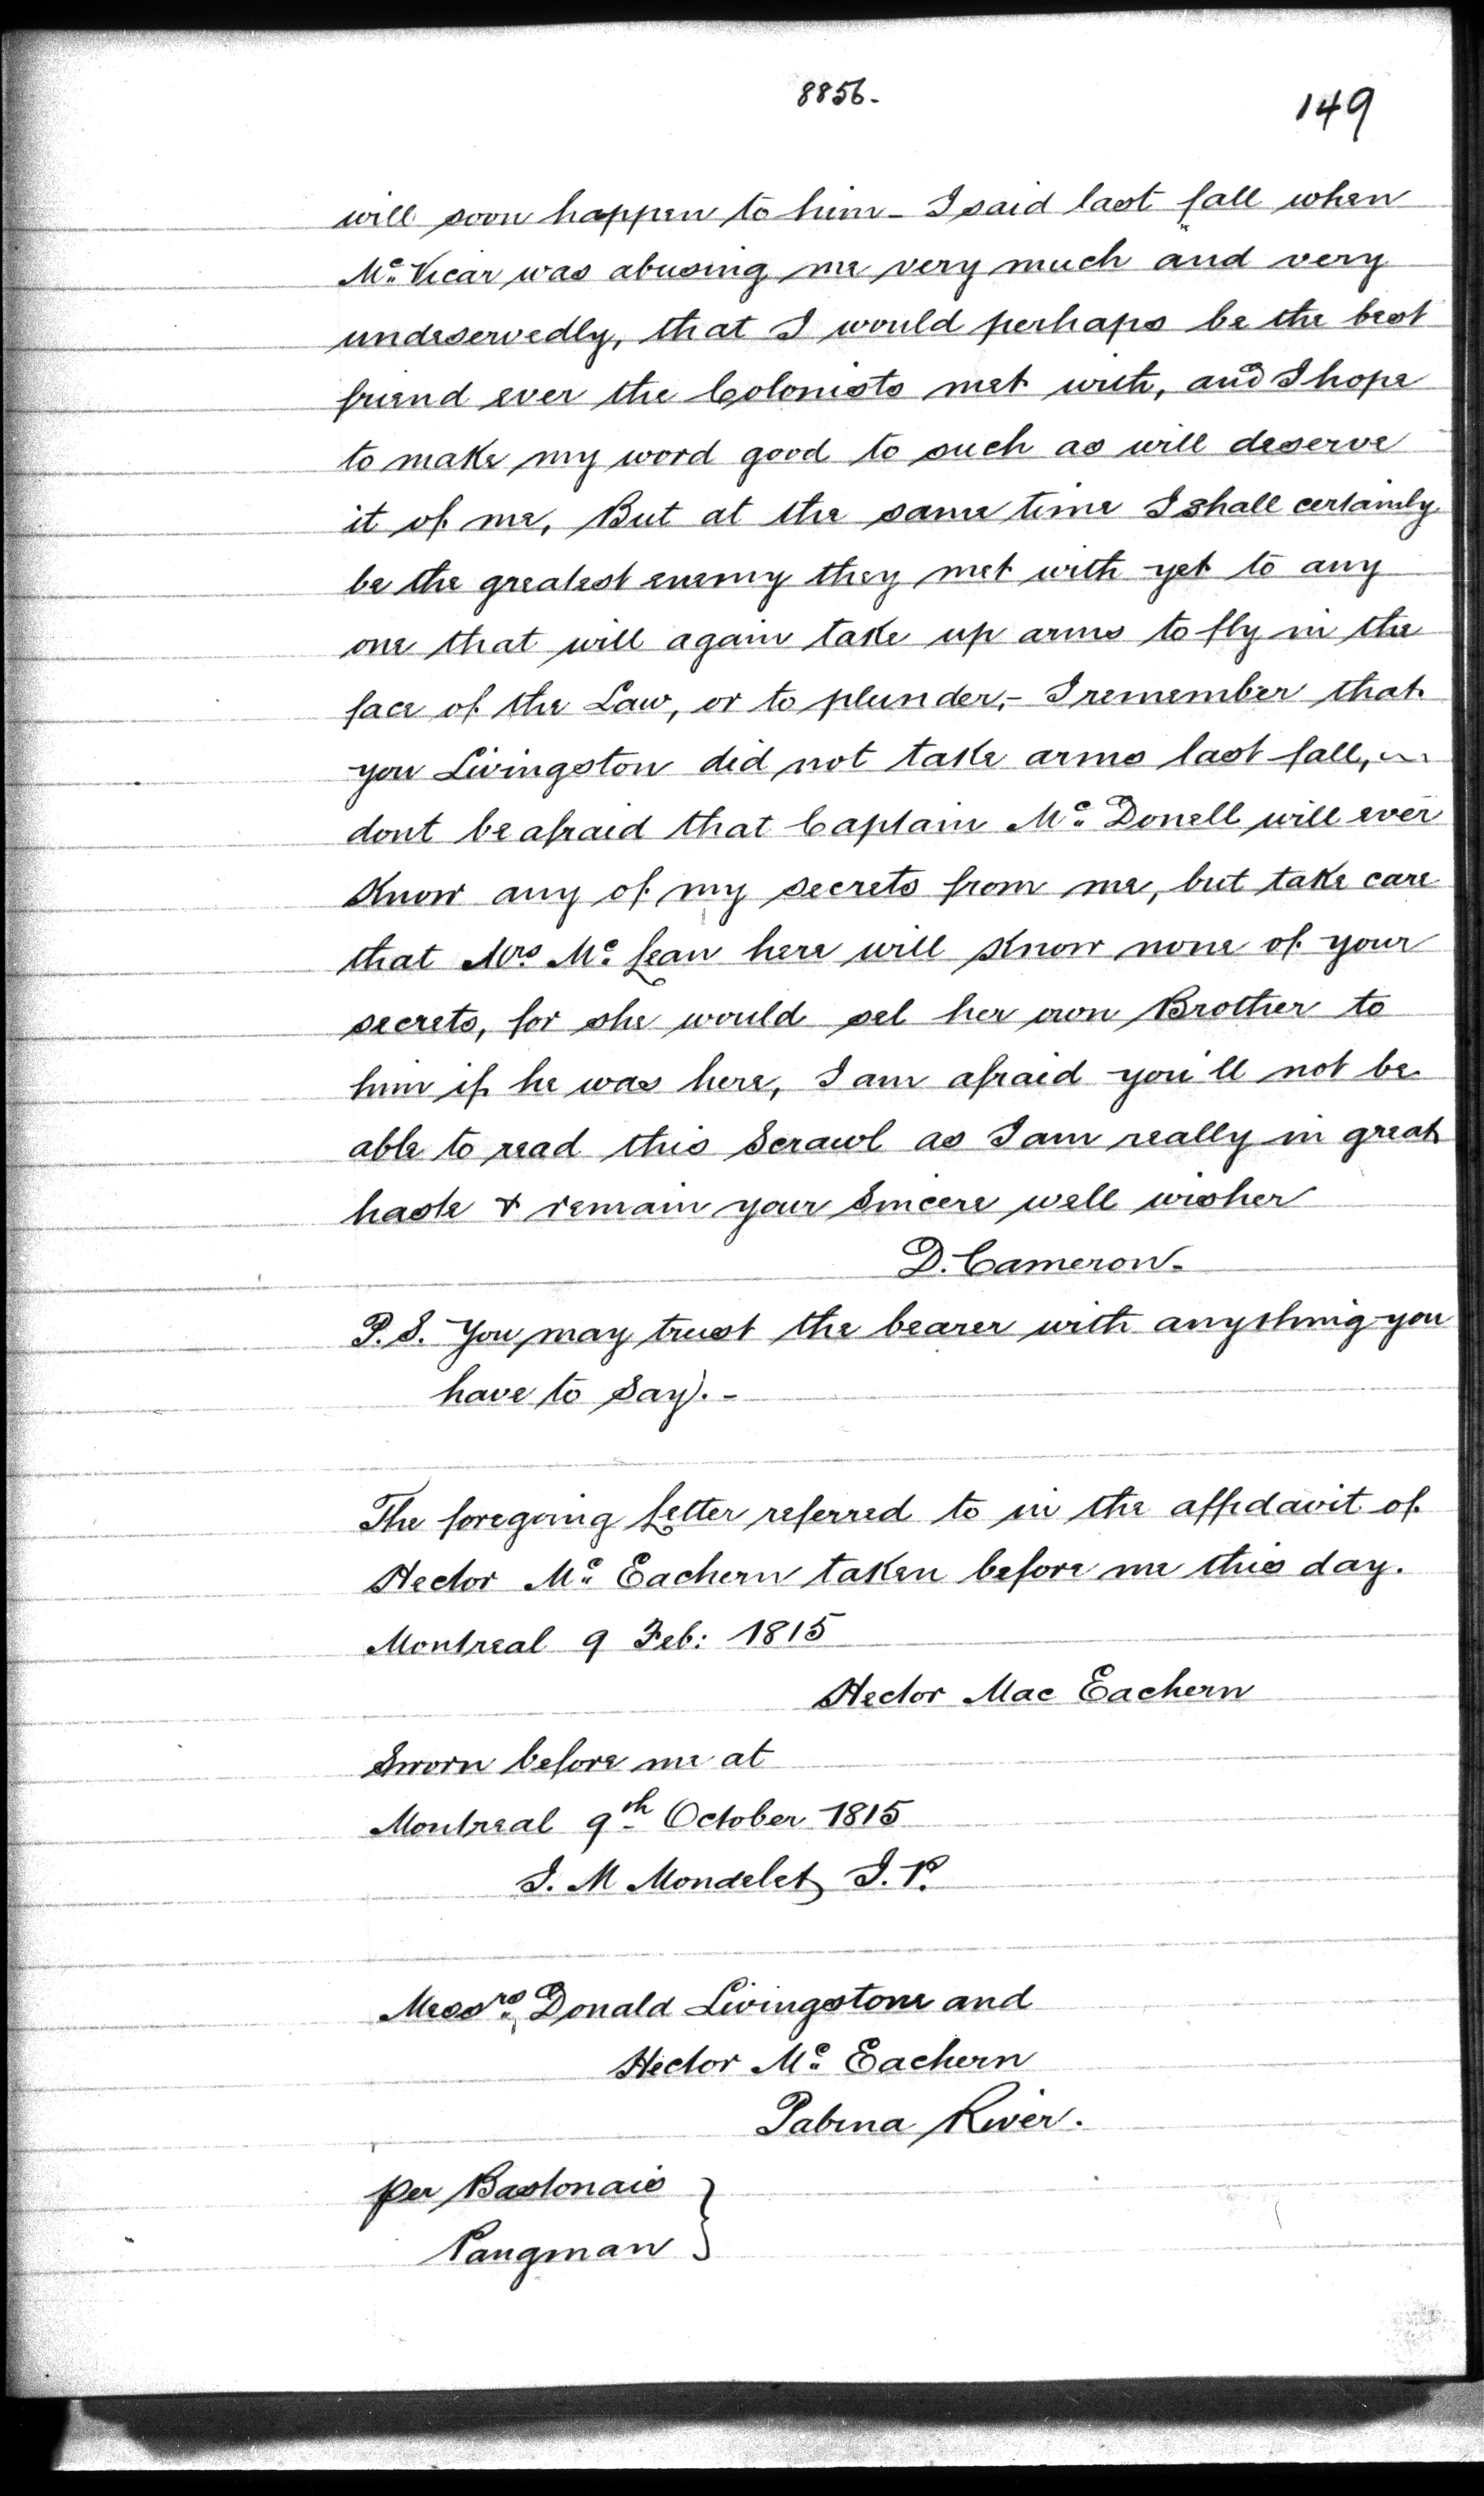 8856.
149
will soon happen to him - I said last fall when
Mc. Vicar was abusing me very much and very
undeservedly, that I would perhaps be the best
friend ever the Colonists met with, and I hope
to make my word good to such as will deserve
it of me, But at the same time I shall certainly
be the greatest enemy they met with yet to any
one that will again take up arms to fly in the
face of the Law, or to plunder, - I remember that
you Livingston did not take arms last fall,
dont be afraid that Captain Mc. Donell will ever
Know any of my secrets from me, but take care
that Mrs Mc. Lean here will Know none of your
secrets, for she would sel her own Brother to
him if he was here, I am afraid you'll not be
able to read this Scrawl as I am really in great
haste & remain your Sincere well wisher
D. Cameron.
P.S. You may trust the bearer with anything you
have to Say). -
The foregoing Letter referred to in the affidavit of
Hector Mc. Eachern taken before me this day.
Montreal 9 Feb: 1815
Hector Mac Eachern
Sworn before me at
Montreal 9th October 1815
J. M Mondelet J. P.
Messrs. Donald Livingstone and
Hector Mc. Eachern
Pabina River.
per Bastonais }
Pangman